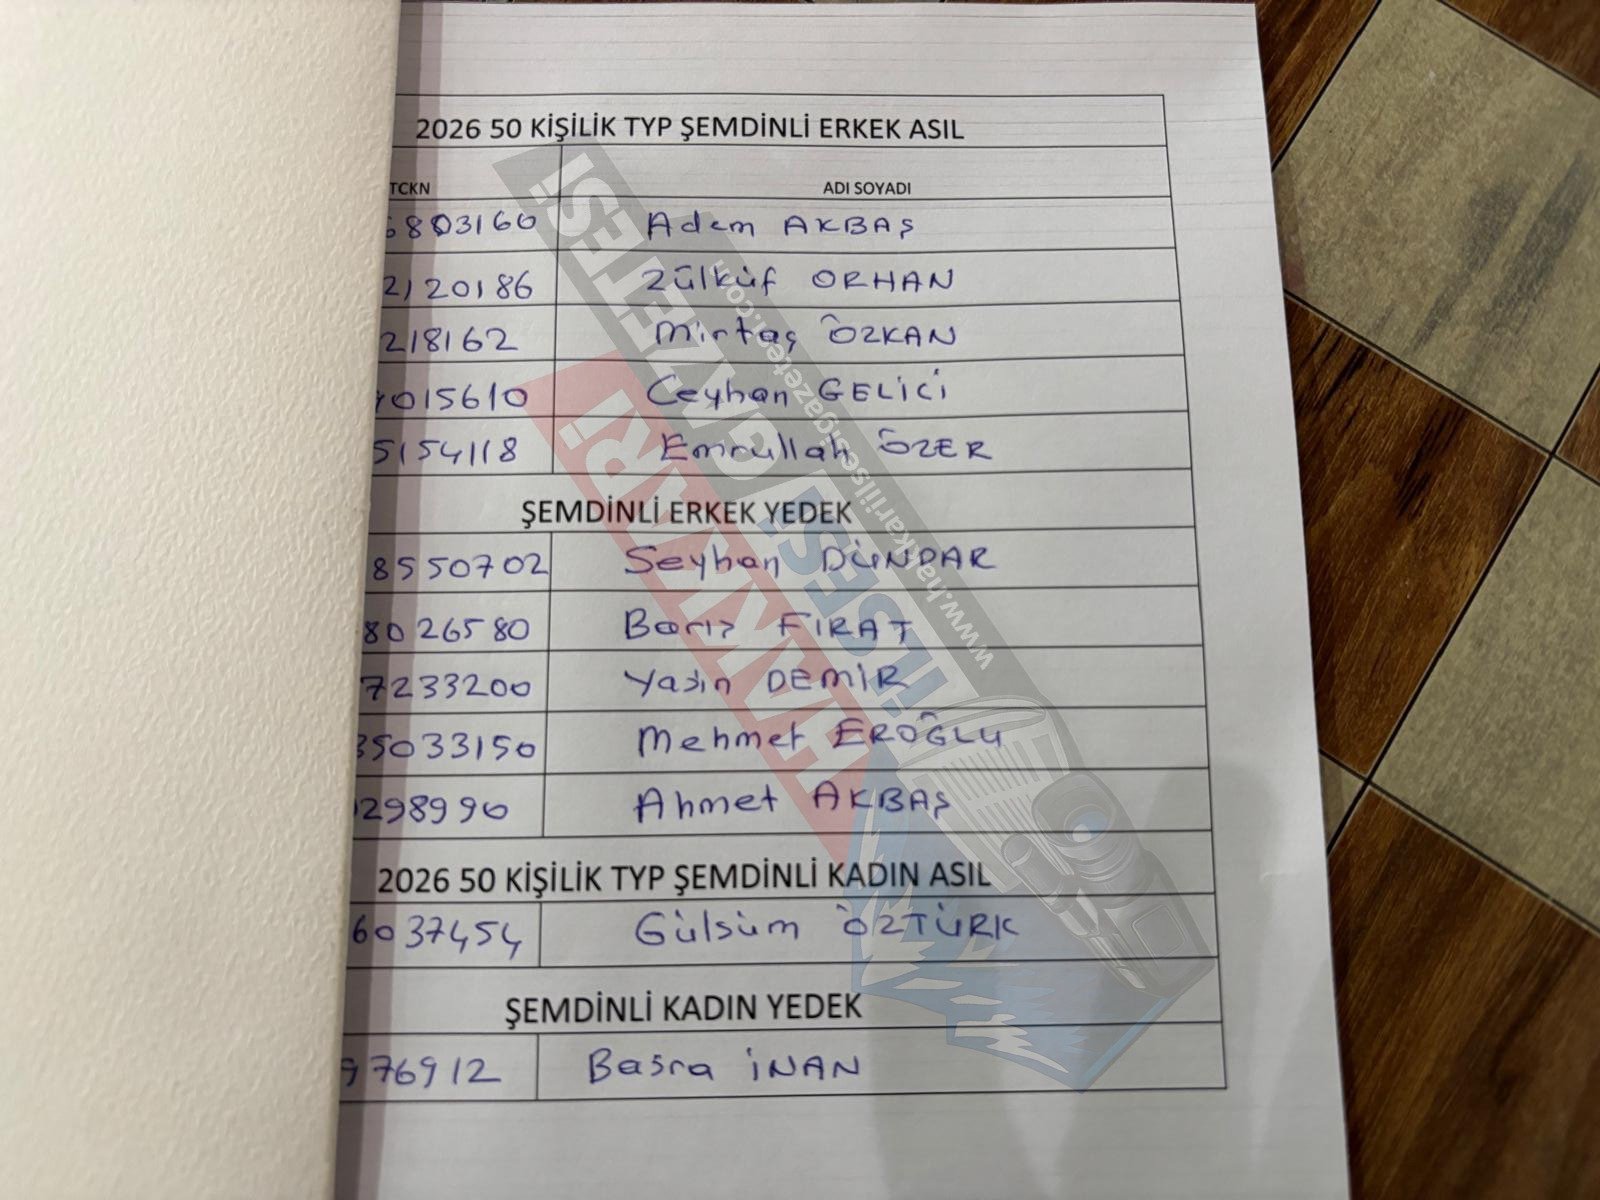 2026 50 KİŞİLİK TYP ŞEMDİNLİ ERKEK ASIL
TCKN ADI SOYADI
6803160 Adem AKBAŞ
2120186 Zülküf ORHAN
218162 Mirtaş ÖZKAN
015610 Ceyhan GELİCİ
5154118 Emrullah ÖZER
ŞEMDİNLİ ERKEK YEDEK
8550702 Seyhan DÜNDAR
8026580 Barış FIRAT
7233200 Yasin DEMİR
35033150 Mehmet EROĞLU
298990 Ahmet AKBAŞ
2026 50 KİŞİLİK TYP ŞEMDİNLİ KADIN ASIL
6037454 Gülsüm ÖZTÜRK
ŞEMDİNLİ KADIN YEDEK
976912 Basra İNAN
HAKKARİ
İLSESİ GAZETESİ
www.hakkariilsesigazetesi.com